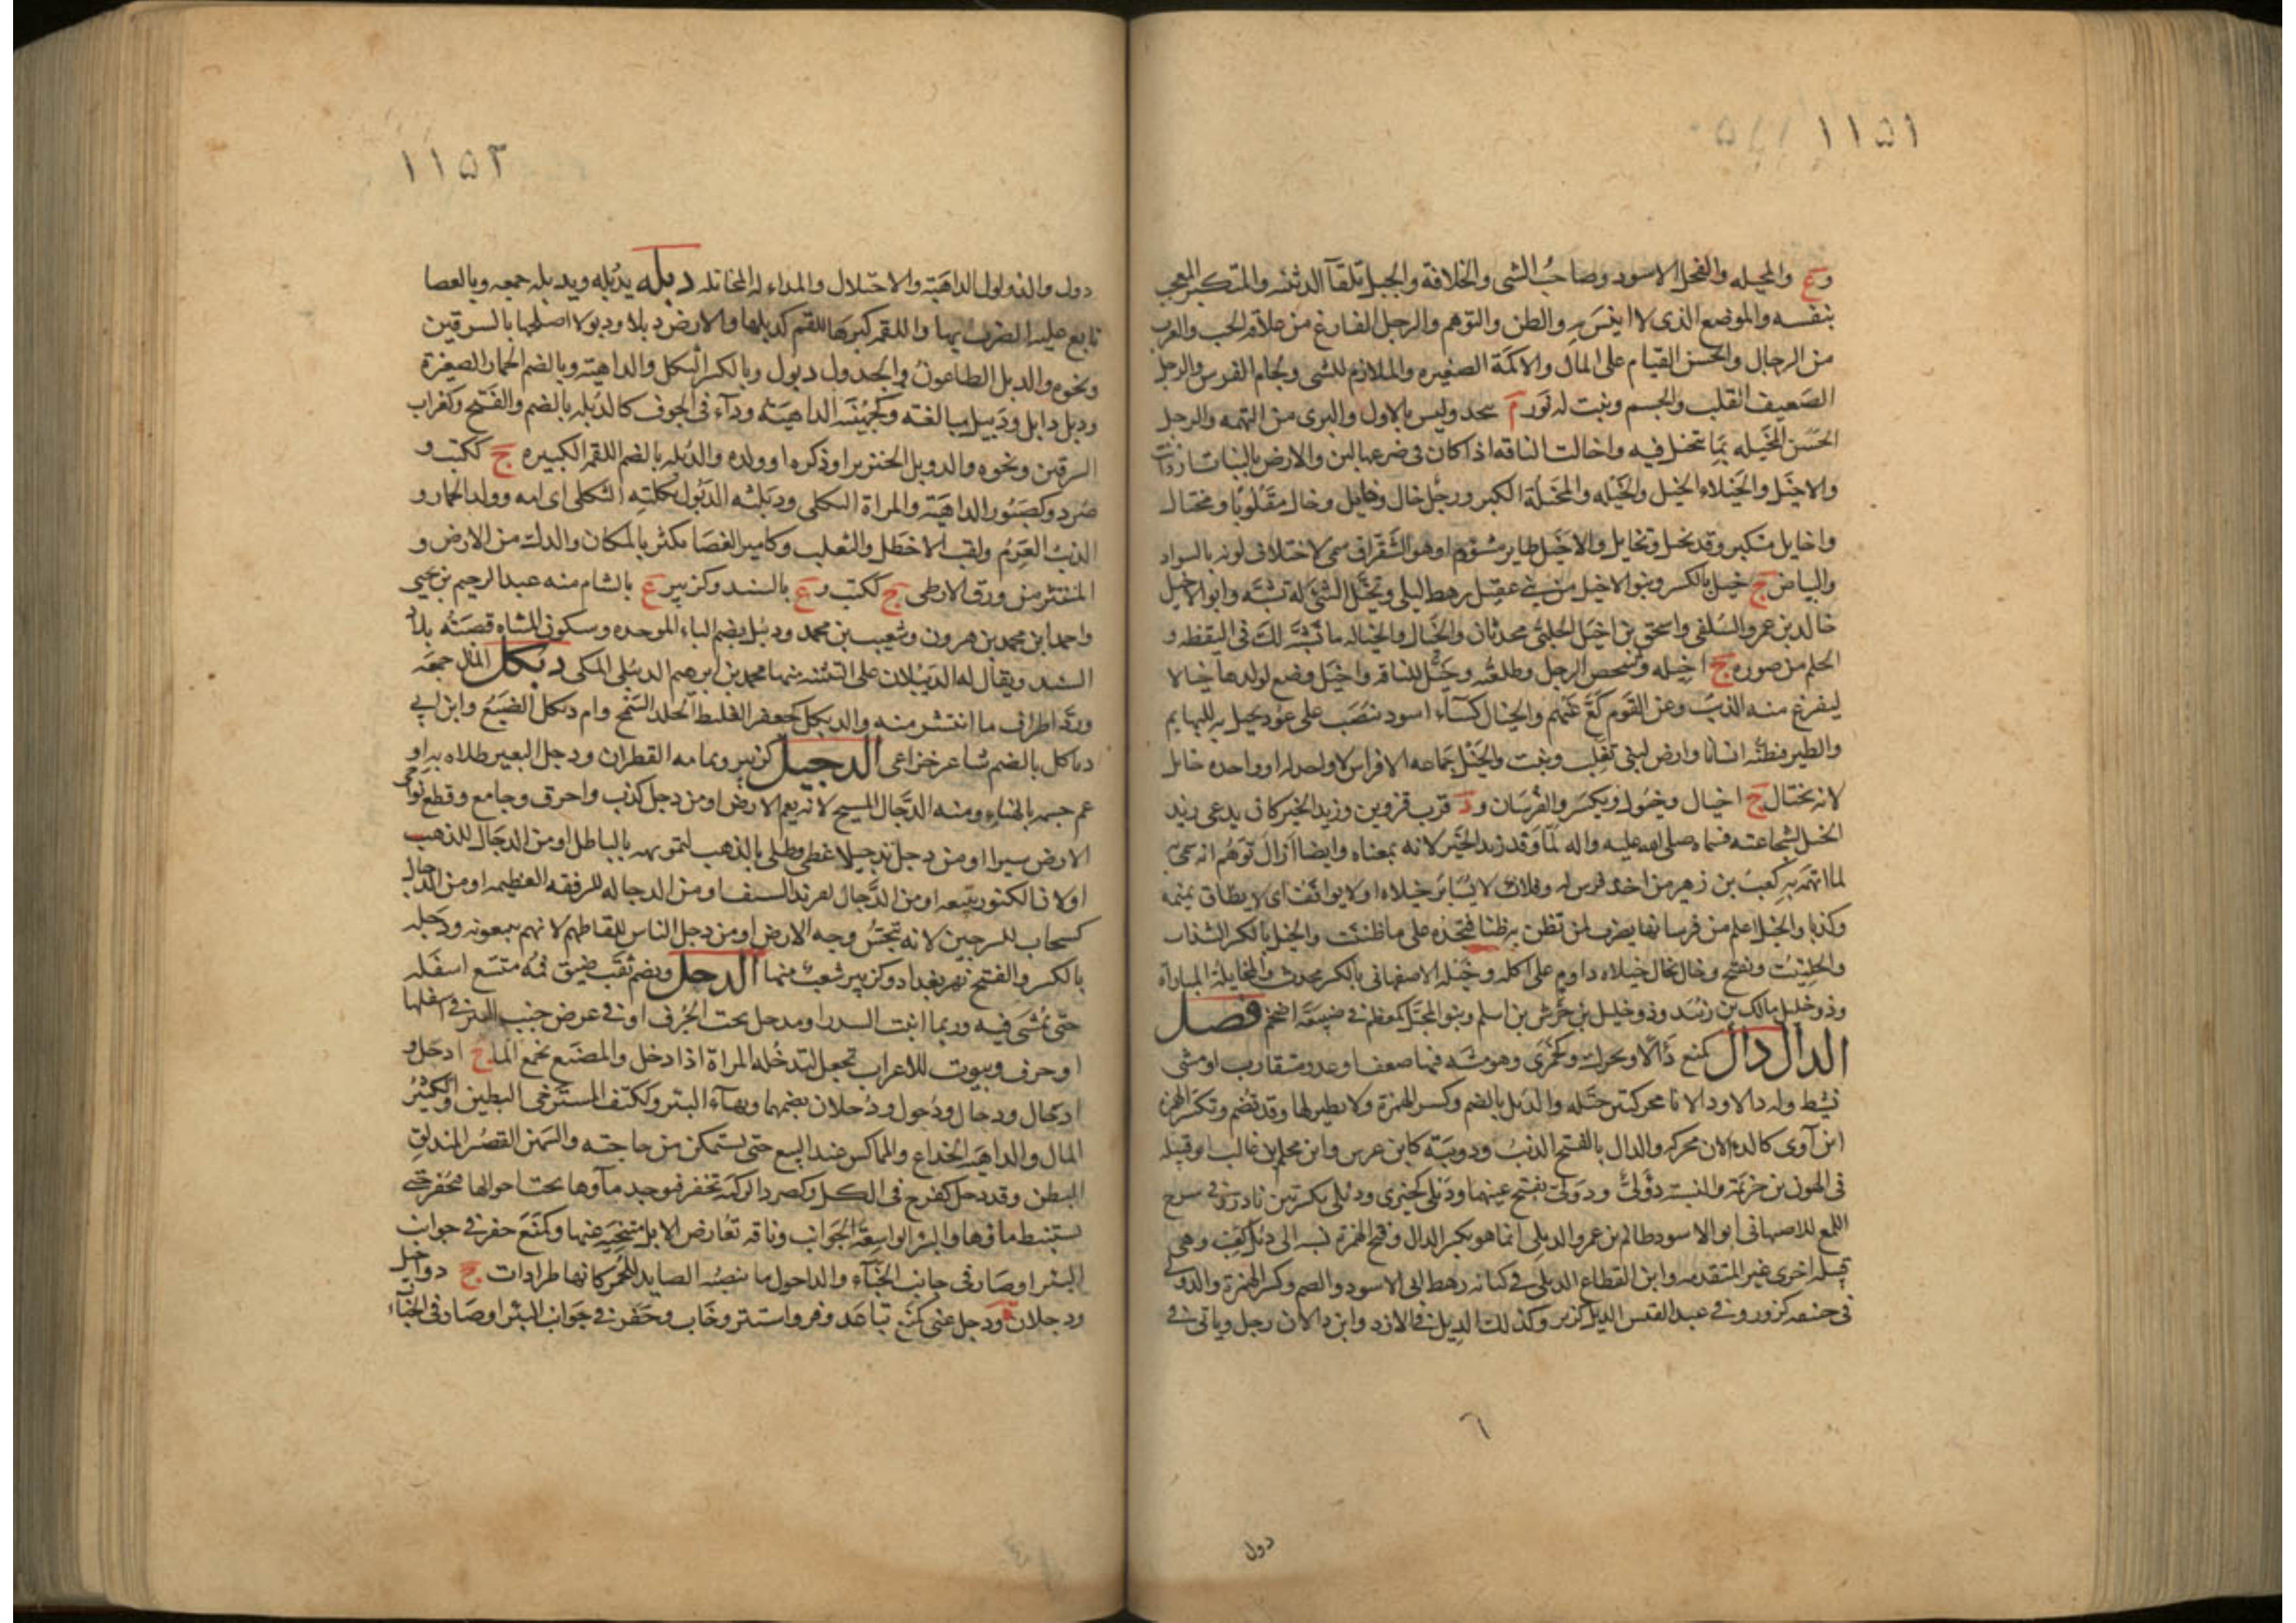 ١١٥١
وع والمخيله والفحل الاسود وصاحب الشى والخلافة والجبل تلقآ الدثنه والمتكبر المعجب
بنفسه والموضع الذى لا انيس به والظن والتوهم والرجل الفارغ من علاقه الحب والعزب
من الرجال والحسن القيام على المال والاكمة الصغيره والملازم للشى ولجام الفرس والرجل
الضعيف القلب والجسم ونبت له نور م بنجد وليس بالاول والبرى من التهمه والرجل
الحسن المخيله بما تتخيل فيه واخالت الناقه اذا كان فى ضرعها لبن والارض بالنبات ازدانت
والاخيل والخيلاء الخيل والخيله والمخيلة الكبر ورجل خال وخايل وخال مقلوبا ومختال
واخايل متكبر وقد تخيل وتخايل والاخيل طاير مشوم او هو الشقراق سمى لاختلاف لونه بالسواد
والبياض ج خيل بالكسر وبنو الاخيل من بنى عقيل رهط ليلى وتخيل الشئ له تشبه وابو الاخيل
خالد بن عمرو السلفى واسحق بن اخيل الحلبى محدثان والخيال والخياله ما تشبه لك فى اليقظه و
الحلم من صوره ج اخيله وشخص الرجل وطلعته وخيل للناقه واخيل وضع لولدها خيالا
ليفزع منه الذئب وعن القوم كع عنهم والخيال كساء اسود ينصب على عود يخيل به للبهايم
والطير فتظنه انسانا وارض لبنى تغلب ونبت والخيل جماعه الافراس لا واحد له او واحده خايل
لانه يختال ج اخيال وخيول ويكسر والفرسان و د قرب قزوين وزيد الخير كان يدعى زيد
الخيل لشجاعته فسماه صلى الله عليه واله لما وفد زيد الخير لانه بمعناه وايضا ازال توهم انه سمى به
لما اتهمه به كعب بن زهير من اخذ فرس له وفلان لا تساير خيلاه او لا تواقف اى لا يطاق نميمه
وكذبا والخيل اعلم من فرسانها يضرب لمن تظن به ظنا فتجده على ما ظننت والخيل بالكسر السذاب
والحلتيت ويفتح وخال يخال خيلاه داوم على اكله وخيله الاصفهانى بالكسر محدث والمخايلة المباراة
وذو خليل مالك بن زبيد وذو خليل بن جرش بن اسلم وبنو المخيل كمعظم فى ضبيعة اضخم فصل
الدال دال كمنع دألا ويحرك وكجمزى وهو مشيه فيها ضعف او عدو متقارب او مشى
نشيط وله دالا ودالانا محركتين ختله والدئل بالضم وكسر الهمزة ولا نظير لها وقد تضم وتكسر الهمزه
ابن آوى كالدءلان محركه والدال بالفتح الذئب ودويبة كابن عرس وابن محلم بن غالب ابو قبيله
فى الهون بن خزيمه والنسبة دؤلى ودولى بفتح عينهما ودئلى كخيرى ودئلى بكسرتين نادره وفى شرح
اللمع للاصبهانى ابو الاسود ظالم بن عمرو الدئلى انما هو بكسر الدال وفتح الهمزة نسبه الى دئل كعنب وهى
قبيله اخرى غير المتقدمه وابن القطاع الدئلى فى كنانه رهط ابى الاسود والضم وكسر الهمزة والدول
فى حنيفه كزور وفى عبد القيس الديل كزير وكذلك الديل فى الازد وابن دالان رجل وياتى فى
٦
دول
١١٥٣
دول والدؤلول الداهية والاختلال والمداءله المخاتله دبله يدبله ويدبله جمعه وبالعصا
تابع عليه الضرب بها واللقمه كبرها للقم كدبلها والارض دبلا ودبولا اصلحها بالسرقين
ونحوه والدبل الطاعون والجدول دبول وبالكسر الثكل والداهية وبالضم الحمار الصغيرة
ودبل دابل ودبيل مبالغه وكجهينة الداهية وداء فى الجوف كالدبله بالضم والفتح وكغراب
السرقين ونحوه والدوبل الخنزير او ذكره او ولده والدبله بالضم اللقمه الكبيره ج ككتب و
صرد وكصبور الداهية والمراة الثكلى ودبلته الدبول ثكلته الثكلى اى امه وولد الحمار و
الذئب العرم ولقب الاخطل والثعلب وكامير الغضا يكثر بالمكان والدك من الارض و
المنتثر من ورق الارطى ج ككتب وع بالسند وكزبير ع بالشام منه عبد الرحيم بن يحيى
واحمد ابن محمد بن هرون وشعيب بن محمد ودبيل بضم الباء الموحده وسكون المثناه قصبة بلاد
السند ويقال له الديبلان على التثنيه منها محمد بن ابرهيم الديبلى المكى دبكل المال جمعه
ورد اطراف ما انتشر منه والدبكل كجعفر الغليظ الجلد السمج وام دبكل الضبع وابن ابى
دباكل بالضم شاعر خزاعى الدجيل كزبير وثمامه القطران ودجل البعير طلاه به او
عم جسمه بالهناء ومنه الدجال المسيح لانه يعم الارض او من دجل كذب واحرق وجامع وقطع نواحى
الارض سيرا او من دجل تدجيلا غطى وطلى بالذهب لتمويهه بالباطل او من الدجال للذهب
او لان الكنوز تتبعه او من الدجال لفرند السيف او من الدجاله للرفقه العظيمه او من الدجال
كسحاب للسرجين لانه ينجس وجه الارض او من دجل الناس للقاطهم لانهم يتبعونه ودجله
بالكسر والفتح نهر بغداد وكزبير شعب منها الدحل ويضم نقب ضيق فمه متسع اسفله
حتى يمشى فيه وربما انبت السدر او مدخل تحت الجرف او فى عرض جنب البئر فى اسفلها
او جرف وبيوت للاعراب تجعل لتدخله المراة اذا دخل والمصنع يجمع الما ج ادحل و
ادحال ودحال ودحول ودحلان بضمهما وبهاء البئر وككتف المسترخى البطين والكثير
المال والداهيه الخداع والمماكس عند البيع حتى يستمكن من حاجته والسمين القصير المندلق
البطن وقد دحل كفرح فى الكل وكصرد الركية تحفر فيوجد ماؤها تحت احوالها فتحفر حتى
يستنبط ماؤها والبئر الواسعة الجوانب وناقه تعارض الابل متنحيه عنها وكمنع حفر فى جوانب
البئر او صار فى جانب الخباء والداحول ما ينصبه الصايد للحمر كانها طرادات ج دواحيل
ودحلان ودحل عنى كمنع تباعد وفر واستتر وخاب وحفر فى جوانب البئر او صار فى الخباء